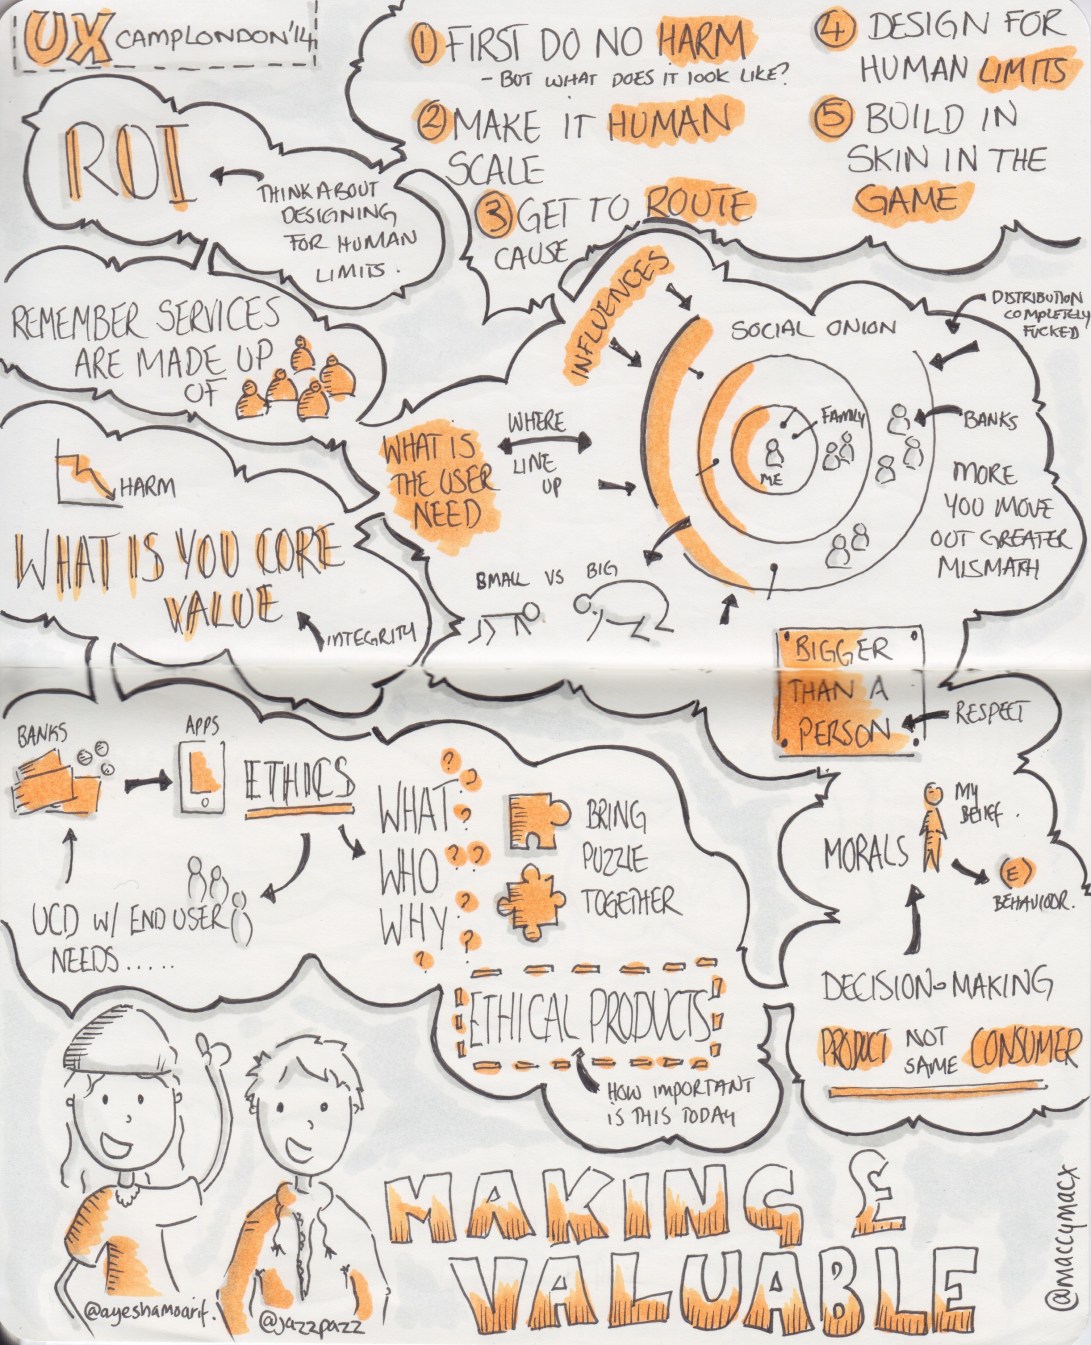 UX CAMPLONDON'14
① FIRST DO NO HARM
- BUT WHAT DOES IT LOOK LIKE?
② MAKE IT HUMAN
SCALE
③ GET TO ROUTE
CAUSE
④ DESIGN FOR
HUMAN LIMITS
⑤ BUILD IN
SKIN IN THE
GAME
ROI
THINK ABOUT
DESIGNING
FOR HUMAN
LIMITS.
REMEMBER SERVICES
ARE MADE UP
OF
HARM
WHAT IS YOU CORE
VALUE
INTEGRITY
INFLUENCES
SOCIAL ONION
DISTRIBUTION
COMPLETELY
FUCKED
WHAT IS
THE USER
NEED
WHERE
LINE
UP
FAMILY
ME
BANKS
MORE
YOU MOVE
OUT GREATER
MISMATH
SMALL VS BIG
BIGGER
THAN A
PERSON
RESPECT
BANKS
APPS
ETHICS
UCD W/ END USER
NEEDS.....
WHAT ???
WHO ??
WHY ???
BRING
PUZZLE
TOGETHER
ETHICAL PRODUCTS
HOW IMPORTANT
IS THIS TODAY
MORALS
MY
BELIEF.
BEHAVIOUR.
DECISION-MAKING
PRODUCT NOT
SAME CONSUMER
@ayeshamoarif.
@jazzpazz
MAKING £
VALUABLE
@maccymacx